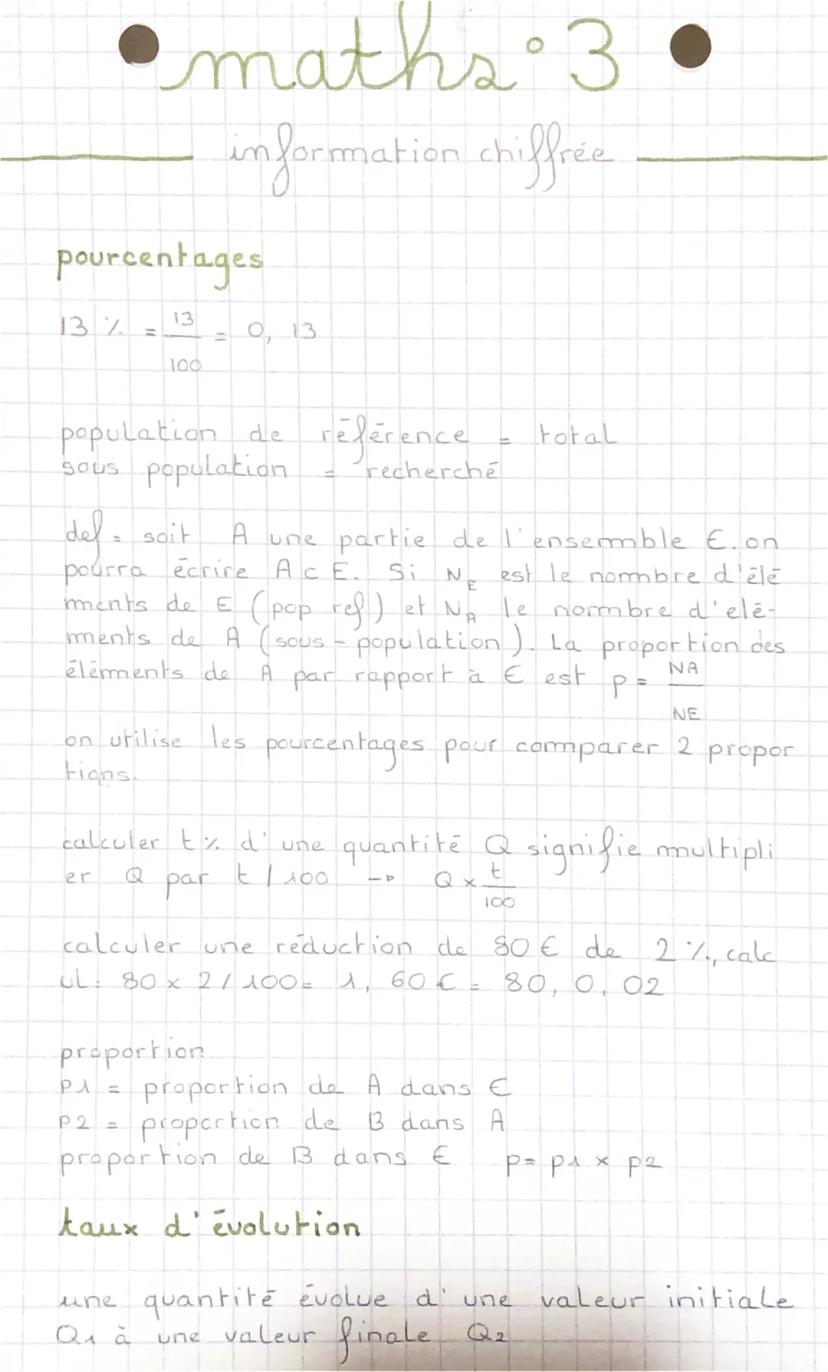 maths ° 3
information chiffrée
pourcentages
13 % = 13/100 = 0, 13
population de référence = total
sous population = recherché
def = soit A une partie de l'ensemble E. on
pourra écrire A ⊂ E. Si NE est le nombre d'élé
ments de E (pop ref) et NA le nombre d'elé-
ments de A (sous - population). La proportion des
éléments de A par rapport à E est p = NA/NE
on utilise les pourcentages pour comparer 2 propor
tions.
calculer t% d'une quantité Q signifie multipli
er Q par t / 100 → Q × t/100
calculer une réduction de 80 € de 2 %, calc
ul : 80 × 2 / 100 = 1, 60 € = 80, 0, 02
proportion
p1 = proportion de A dans E
p2 = proportion de B dans A
proportion de B dans E p = p1 × p2
taux d'évolution
une quantité évolue d'une valeur initiale
Q1 à une valeur finale Q2